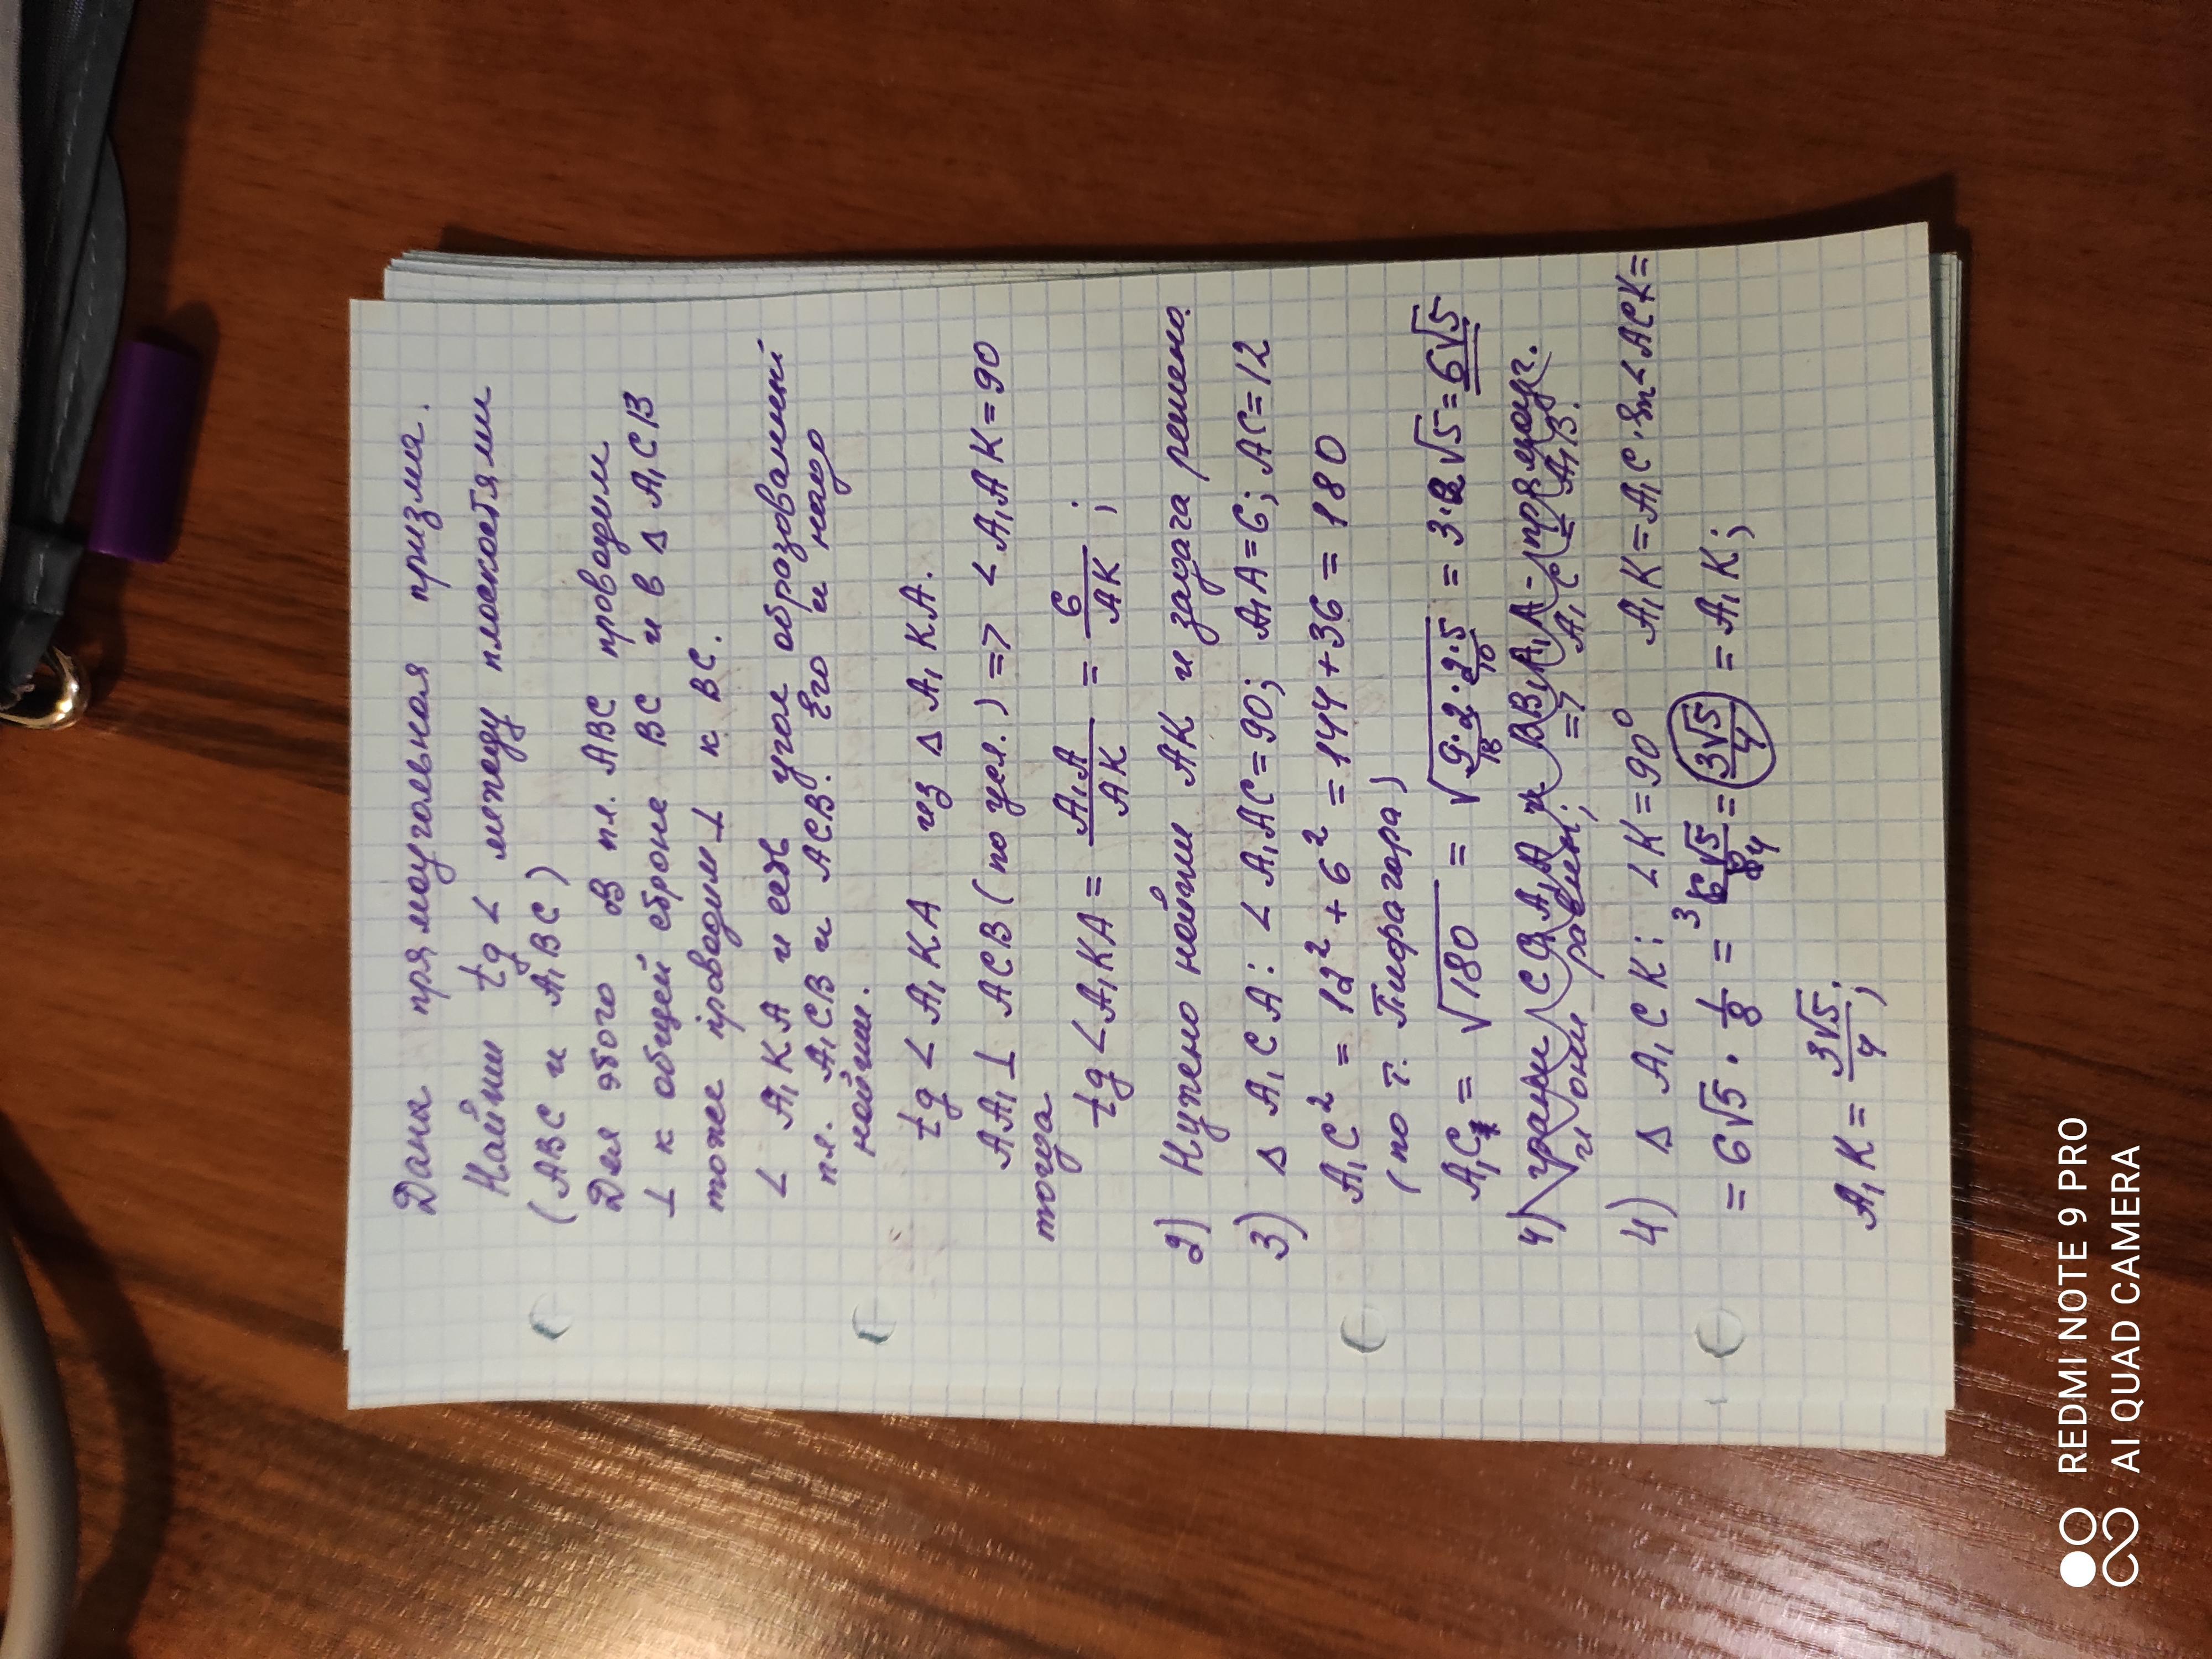 Дана прямоугольная призма.
Найти tg < между плоскостями
(ABC и A₁BC)
Для этого в пл. ABC проводим
⊥ к общей стороне BC и в Δ A₁CB
тоже проводим ⊥ к BC.
< A₁KA и есть угол образованный
пл. A₁CB и ACB. Его и надо
найти.
tg < A₁KA из Δ A₁KA.
AA₁ ⊥ ACB (по усл.) => < A₁AK = 90
тогда
tg < A₁KA = A₁A/AK = 6/AK ;
2) Нужно найти AK и задача решена.
3) Δ A₁CA: < A₁AC = 90; A₁A = 6; AC = 12
A₁C² = 12² + 6² = 144 + 36 = 180
(по т. Пифагора)
A₁C = √180 = √(9·2·2·5) = 3·2√5 = 6√5
18 10
4) грани CC₁A₁A и BB₁A₁A - прямоуг.
и они равны; => A₁C = A₁B.
4) Δ A₁CK: <K = 90° A₁K = A₁C · sin < ACK =
= 6√5 · 1/8 = 6√5/8 = 3√5/4 = A₁K;
3 4
A₁K = 3√5/4;
REDMI NOTE 9 PRO
AI QUAD CAMERA